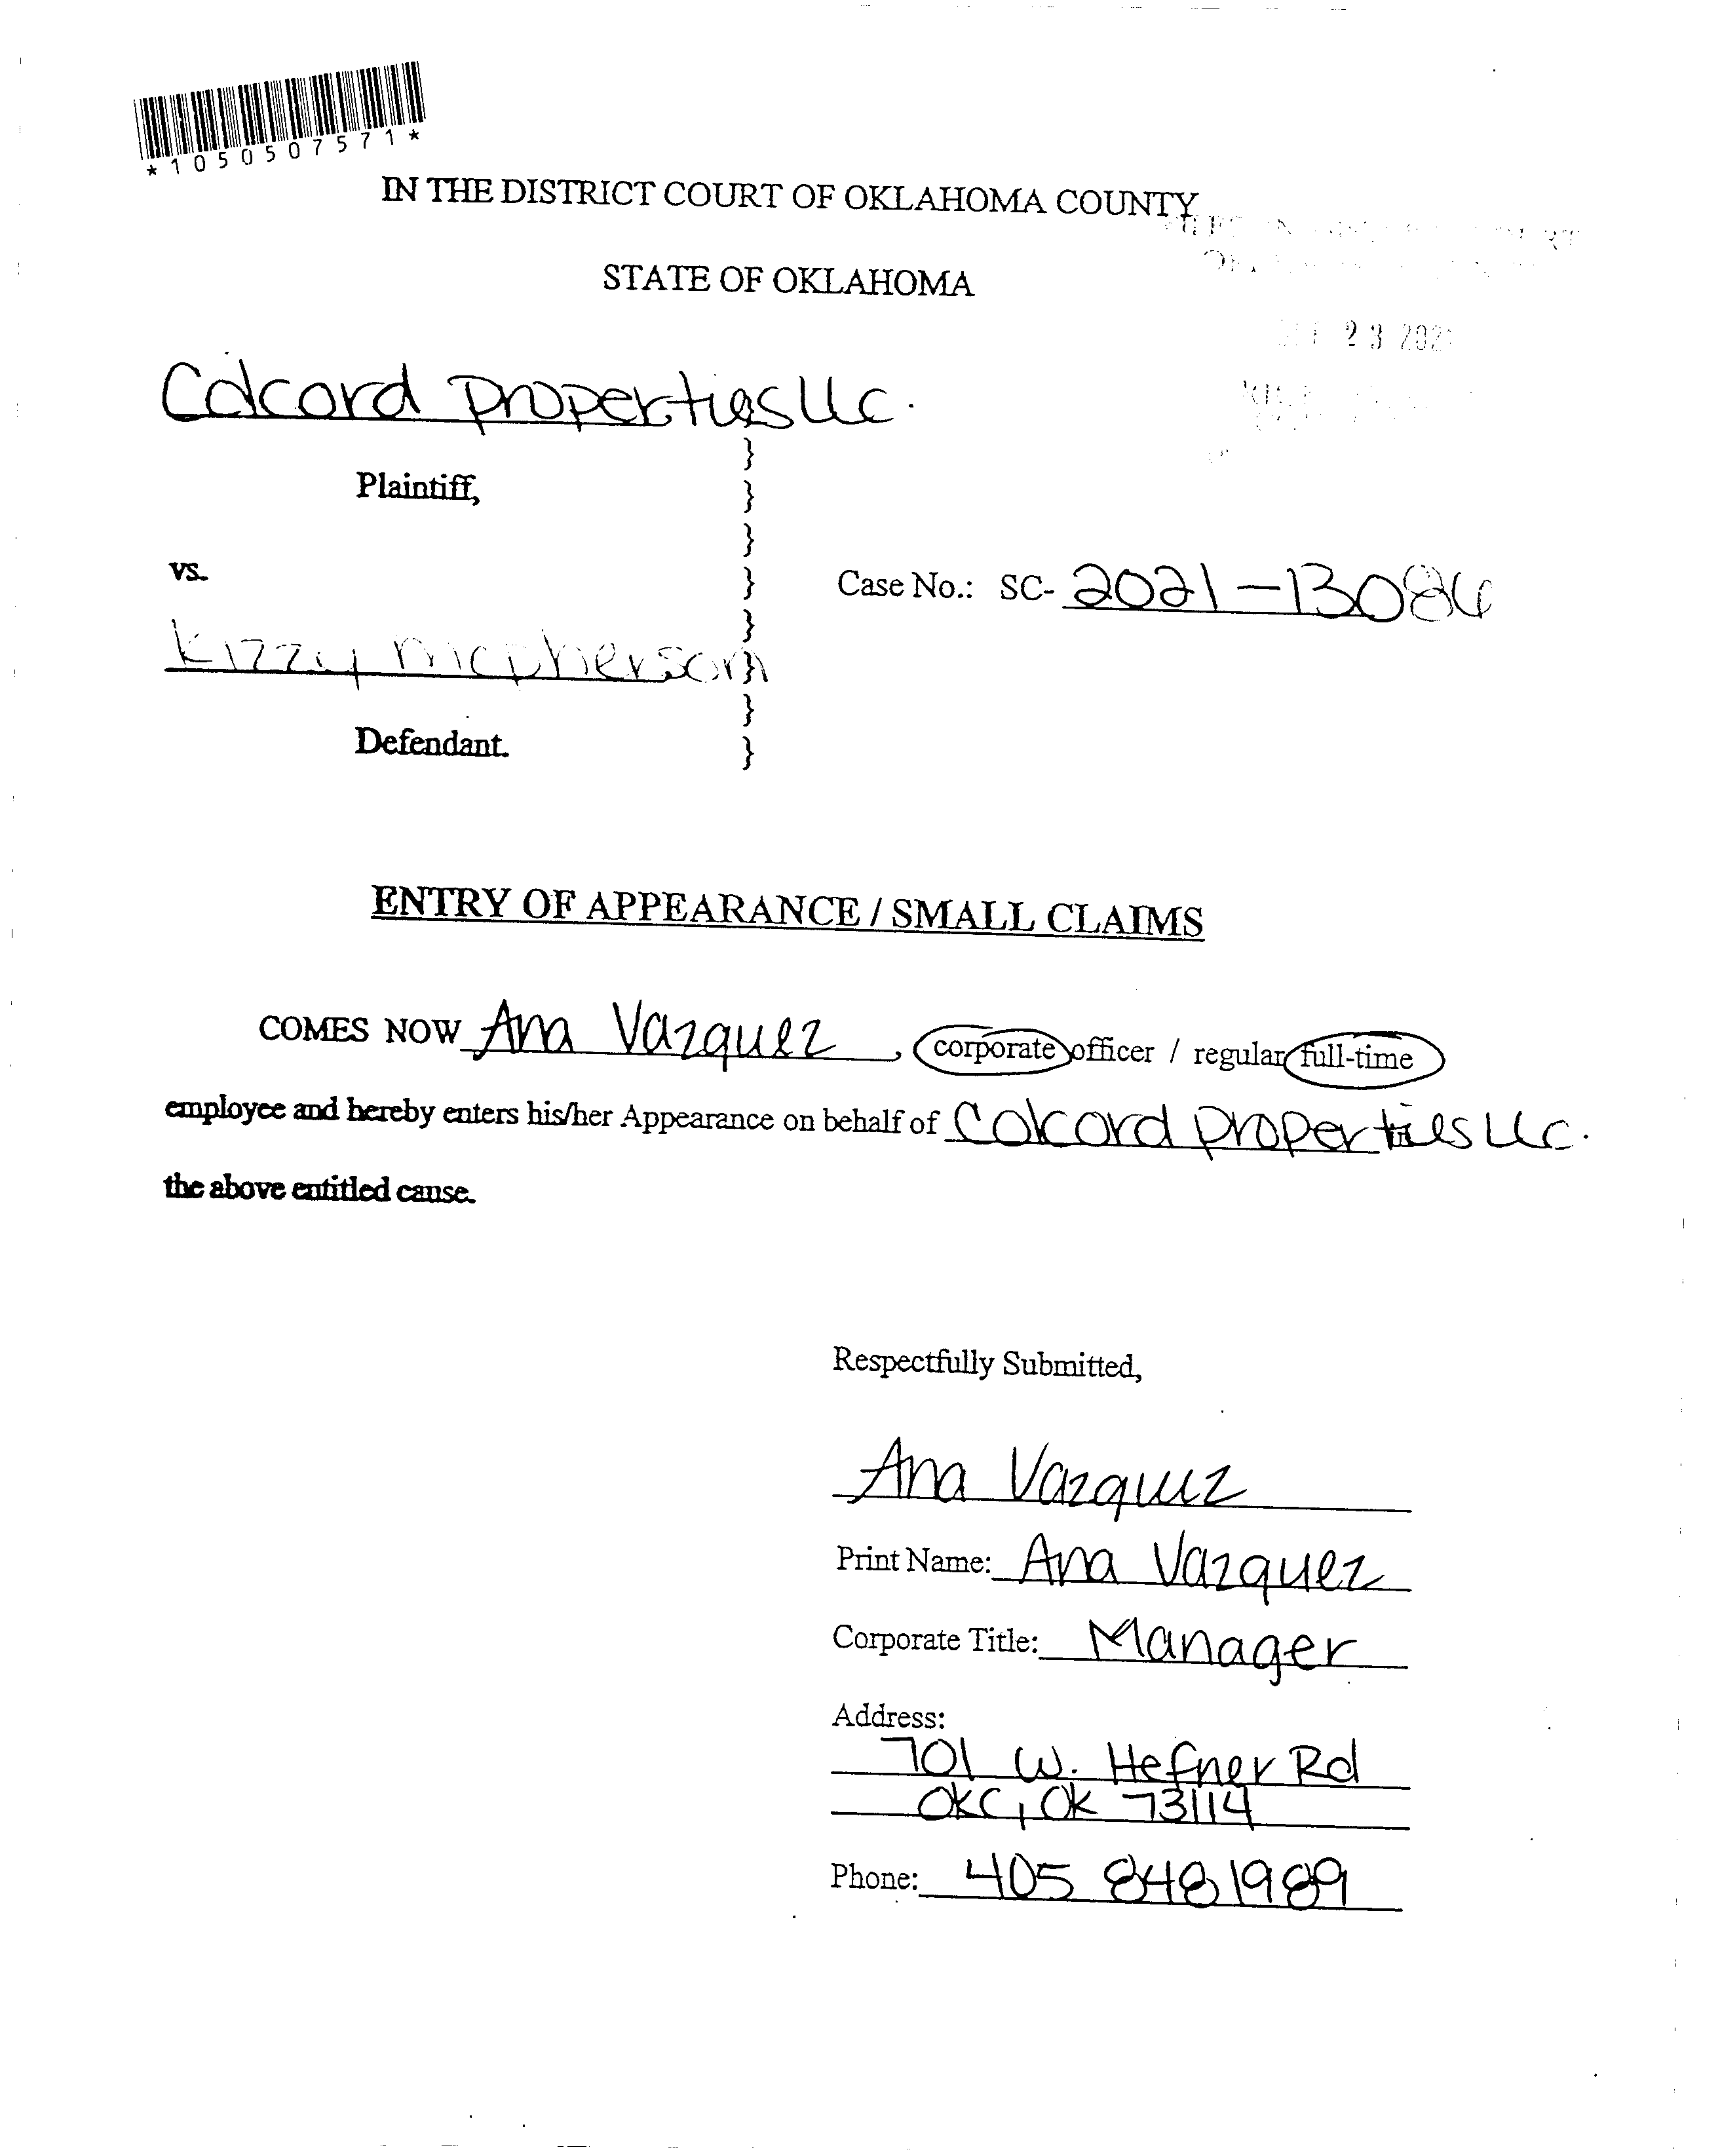 *1050507571*
IN THE DISTRICT COURT OF OKLAHOMA COUNTY
STATE OF OKLAHOMA
23 202
Colcord properties llc.
Plaintiff,
vs.
Case No.: SC- 2021-13086
Kizzy mcpherson
Defendant.
ENTRY OF APPEARANCE / SMALL CLAIMS
COMES NOW Ana Vazquez, corporate officer / regular full-time
employee and hereby enters his/her Appearance on behalf of Colcord properties llc.
the above entitled cause.
Respectfully Submitted,
Ana Vazquez
Print Name: Ana Vazquez
Corporate Title: Manager
Address:
701 W. Hefner Rd
OKC, OK 73114
Phone: 405 848 1989